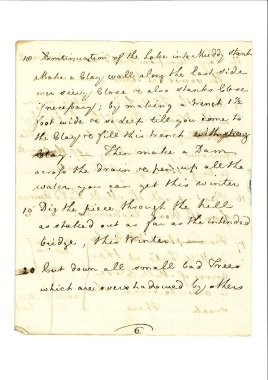 18 Continuation of the Lake into Muddy Stank
Make a Clay wall along the East side
over Sivey Close & also Stanks Close
if necessary; by making a trench 1½
foot wide or so deep till you come to
the Clay & fill this trench with strong
Clay — Then make a Dam
across the drain & pen up all the
water you can get this winter
19 Dig the piece through the hill
as staked out as far as the intended
bridge, this Winter —
20 Cut down all small bad Trees
which are overshadowed by others
6.